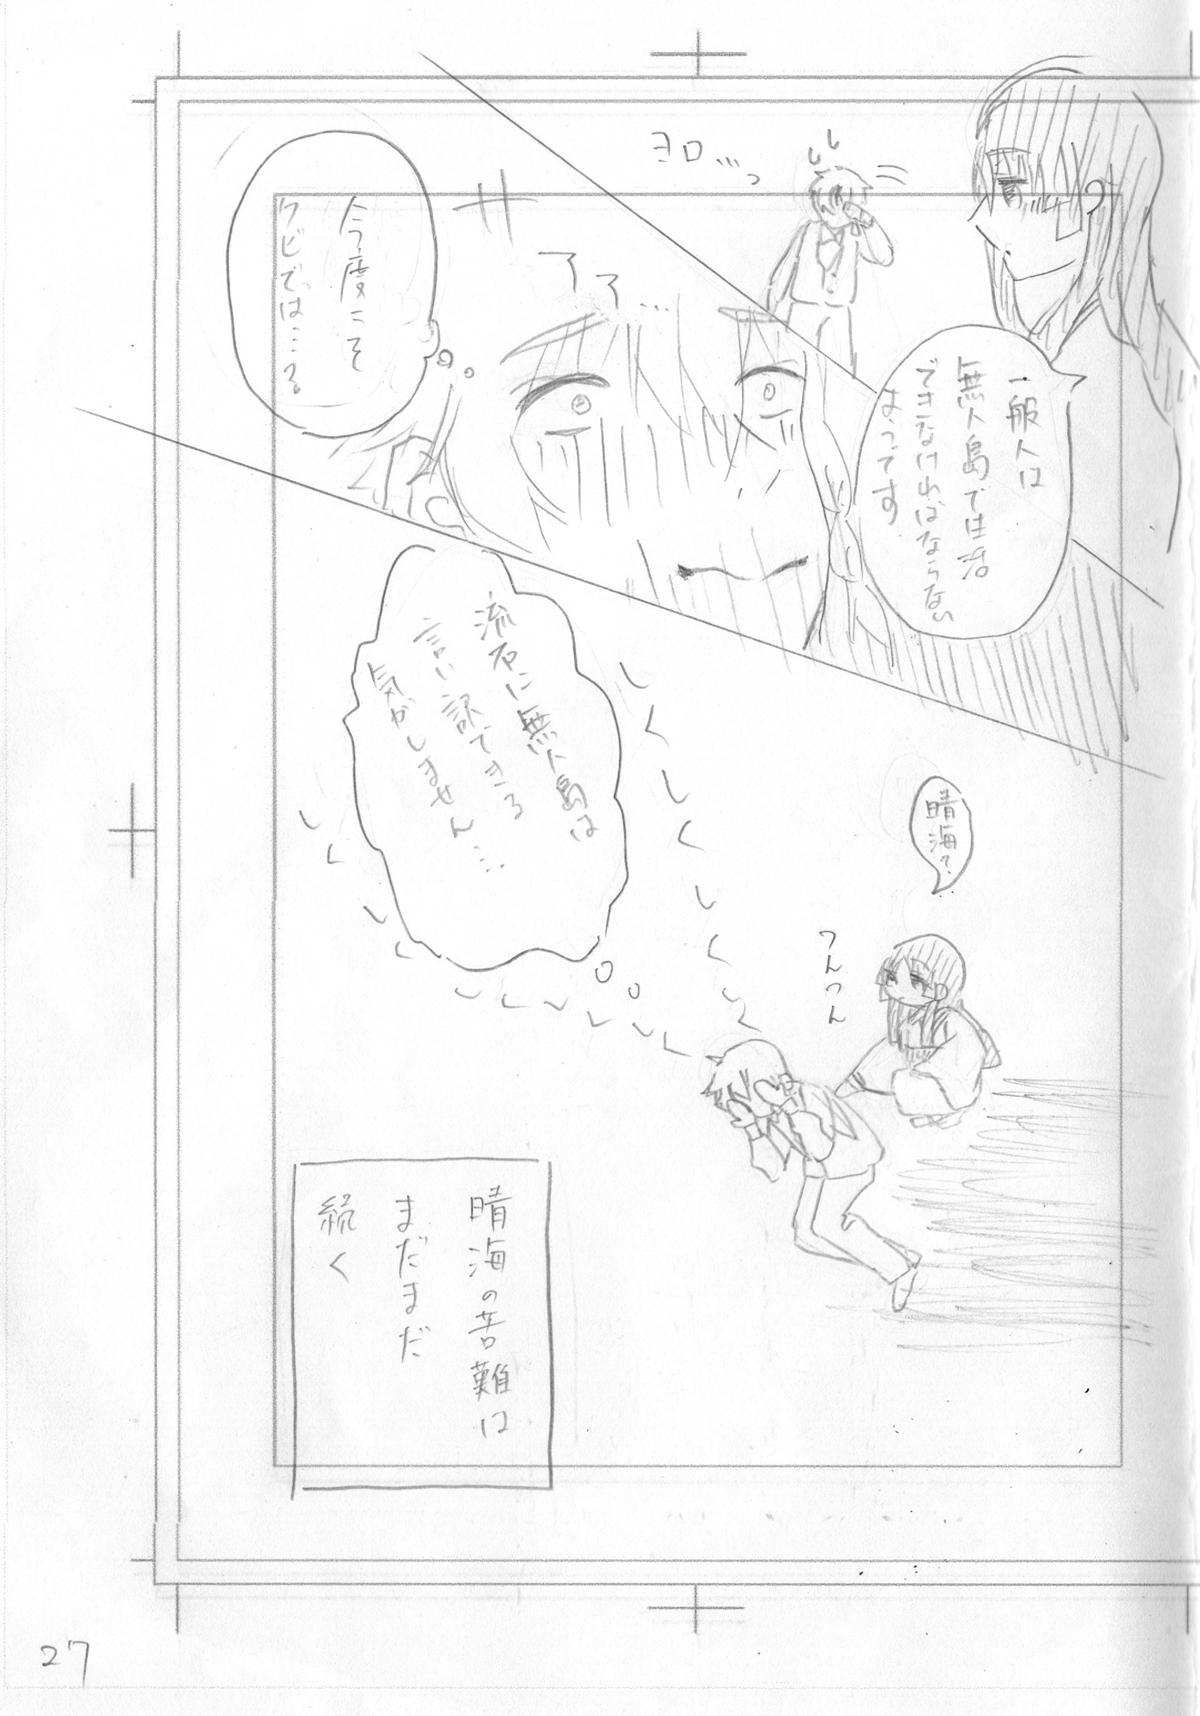 ヨロ…っ
一般人は
無人島で生活
できなければならない
はつです
アア…
今度こそ
クビでは…?
流石に無人島は
言い訳できる
気がしません…
晴海?
つんつん
晴海の苦難は
まだまだ
続く
27